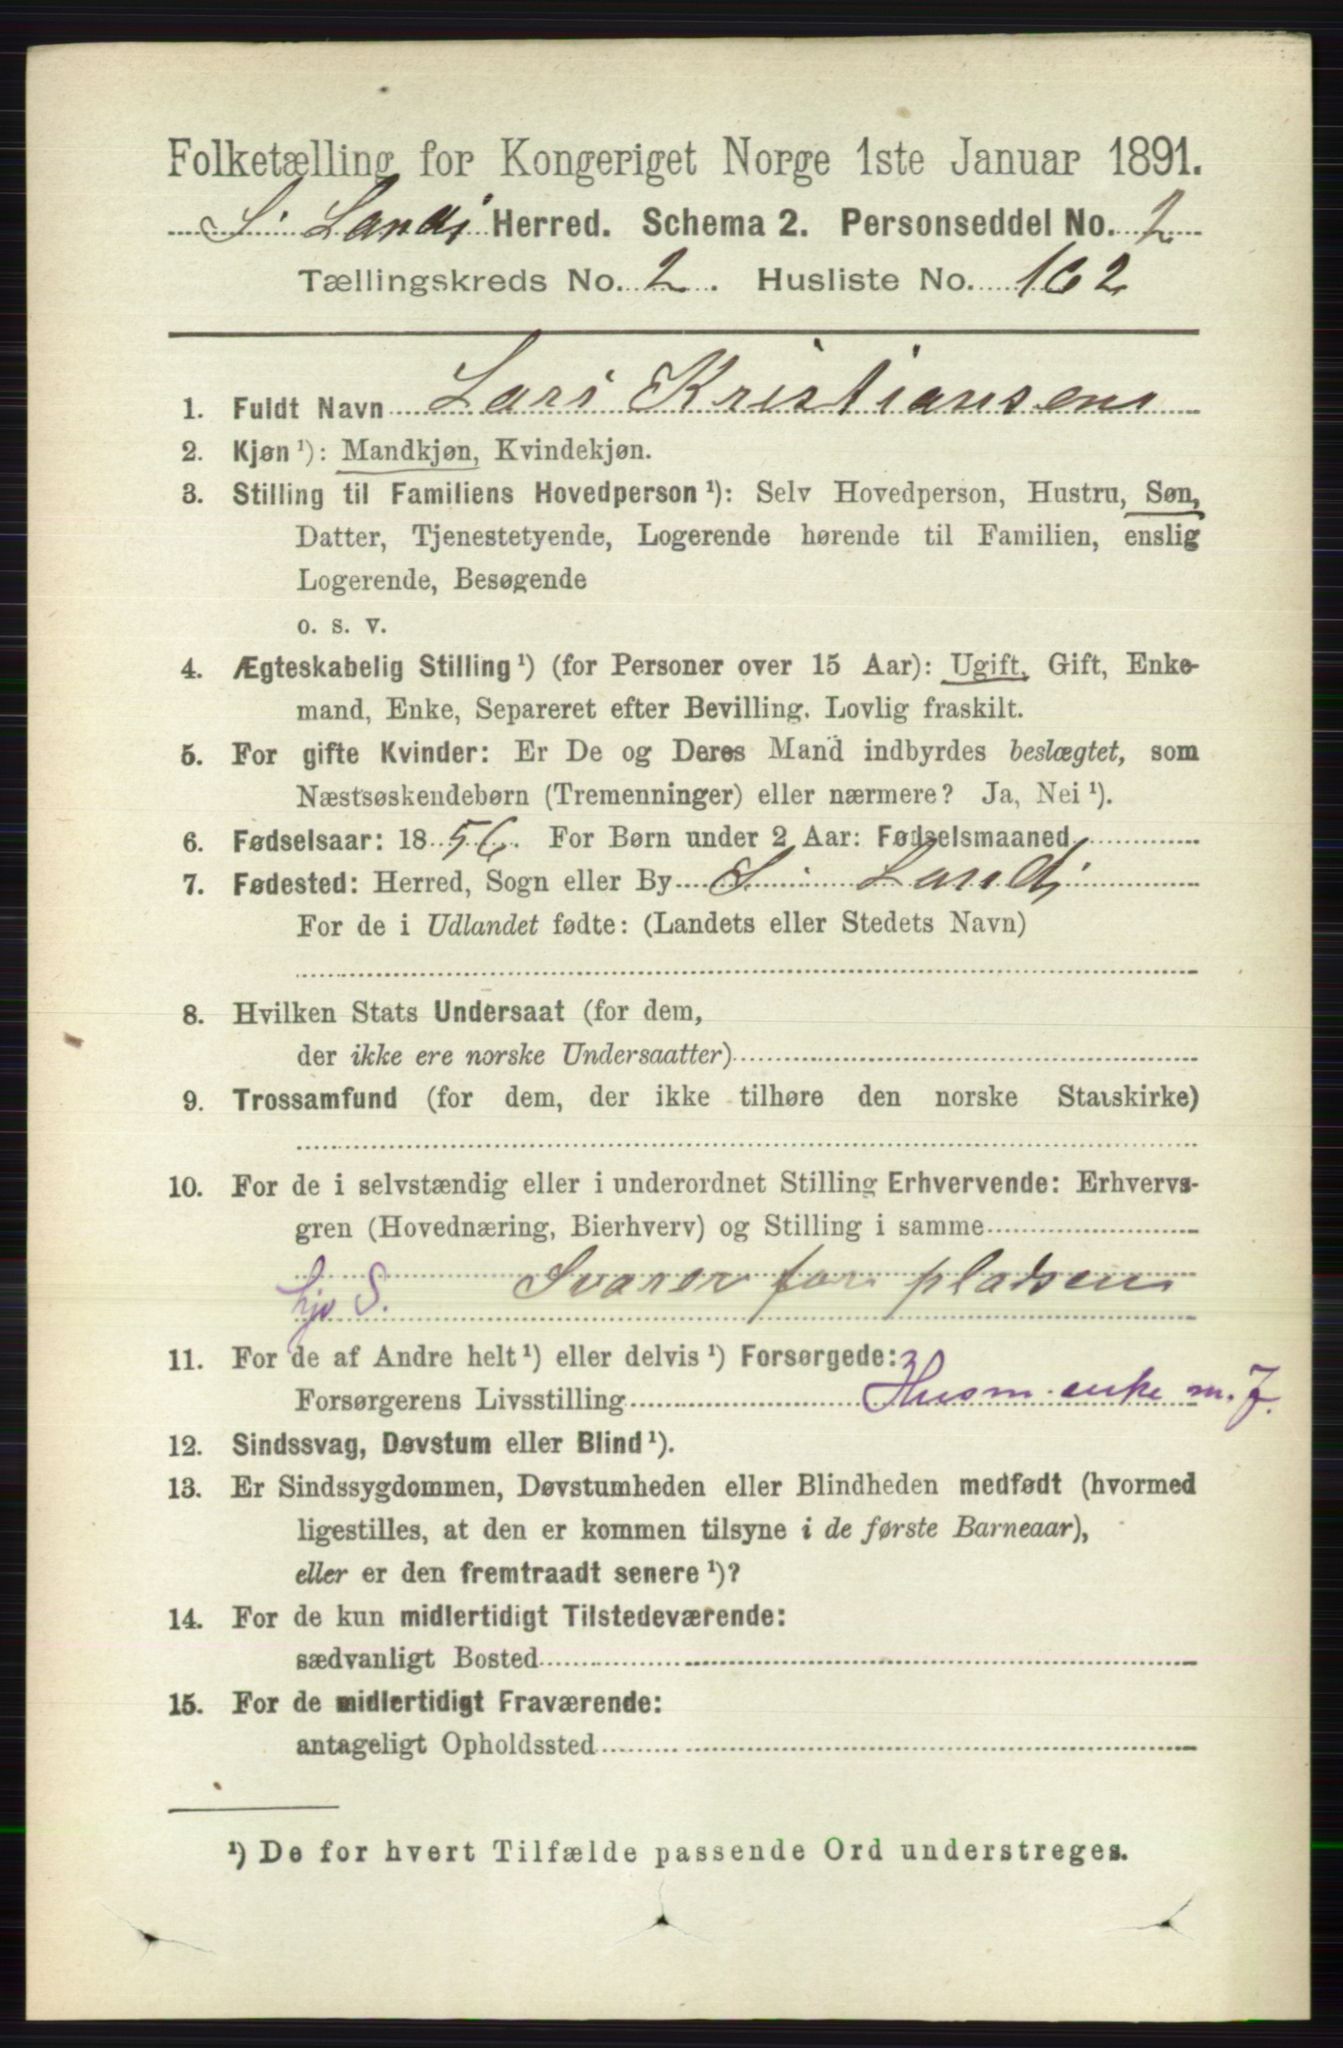 Folketælling for Kongeriget Norge 1ste Januar 1891.
S. Lands Herred. Schema 2. Personseddel No. 2
Tællingskreds No. 2. Husliste No. 162
1. Fuldt Navn Lars Kristiansen
2. Kjøn ¹): Mandkjøn, Kvindekjøn.
3. Stilling til Familiens Hovedperson ¹): Selv Hovedperson, Hustru, Søn,
Datter, Tjenestetyende, Logerende hørende til Familien, enslig
Logerende, Besøgende
o. s. v.
4. Ægteskabelig Stilling ¹) (for Personer over 15 Aar): Ugift, Gift, Enke-
mand, Enke, Separeret efter Bevilling. Lovlig fraskilt.
5. For gifte Kvinder: Er De og Deres Mand indbyrdes beslægtet, som
Næstsøskendebørn (Tremenninger) eller nærmere? Ja, Nei ¹).
6. Fødselsaar: 1856. For Børn under 2 Aar: Fødselsmaaned
7. Fødested: Herred, Sogn eller By S. Lands
For de i Udlandet fødte: (Landets eller Stedets Navn)
8. Hvilken Stats Undersaat (for dem,
der ikke ere norske Undersaatter)
9. Trossamfund (for dem, der ikke tilhøre den norske Statskirke)
10. For de i selvstændig eller i underordnet Stilling Erhvervende: Erhvervs-
gren (Hovednæring, Bierhverv) og Stilling i samme
Svarer for pladsen
hjv S.
11. For de af Andre helt ¹) eller delvis ¹) Forsørgede:
Forsørgerens Livsstilling Husm. enke m. J.
12. Sindssvag, Døvstum eller Blind ¹).
13. Er Sindssygdommen, Døvstumheden eller Blindheden medfødt (hvormed
ligestilles, at den er kommen tilsyne i de første Barneaar),
eller er den fremtraadt senere ¹)?
14. For de kun midlertidigt Tilstedeværende:
sædvanligt Bosted
15. For de midlertidigt Fraværende:
antageligt Opholdssted
¹) De for hvert Tilfælde passende Ord understreges.